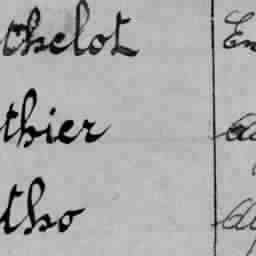 thelot En
thier
tho